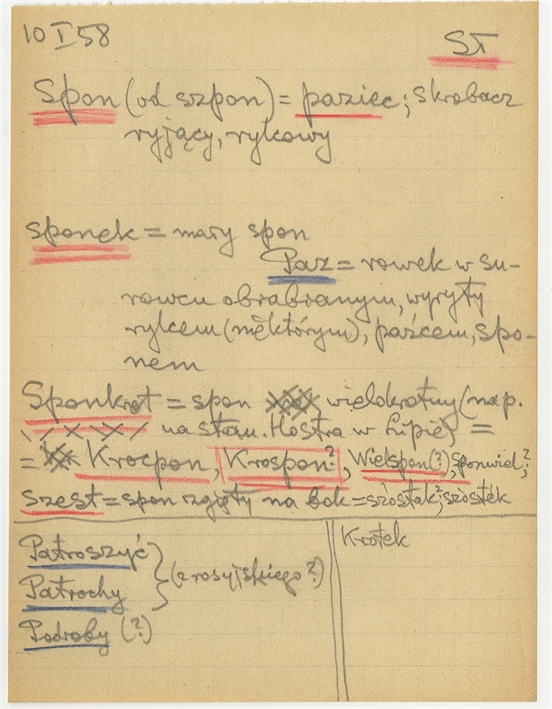 10 I 58
ST
Spon (od szpon) = paziec; skrobacz
ryjący, rylcowy
sponek = mały spon
Paz = rowek w su-
rowcu obrabianym, wyryty
rylcem (niektórym), paźcem, spo-
nem
Sponkrot = spon wielokrotny (nap.
na stan. Mostra w Lipie) =
= Krocpon, Krospon?, Wielspon(?), sponwiel?;
Szest = spon zgięty na bok = szostak?; szostek
Patroszyć
Patrochy
(z rosyjskiego?)
Podroby (?)
Krotek